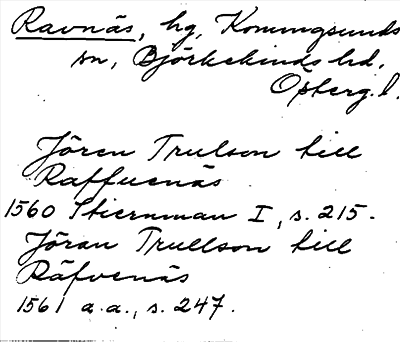 Ravnäs, hg, Konungsunds
sn, Björkekinds hd,
Österg. l.
Jören Trulson till
Raffuenäs
1560 Stiernman I, s. 215.
Jöran Trullson till
Räfvenäs
1561 a.a., s. 247.